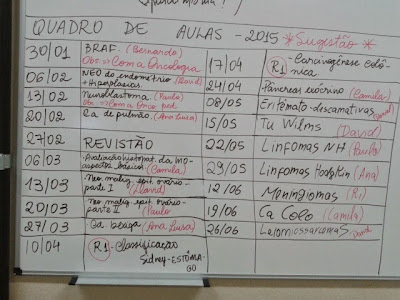 QUADRO DE AULAS - 2015 *Sugestão*
30/01 BRAF. (Bernardo)
Obs.: Com a Oncologia
06/02 NEO de endométrio (David)
+ Hiperplasias
13/02 Neuroblastoma (Paulo)
Obs.: Com a Onco ped.
20/02 Ca de pulmão. (Ana Luisa)
27/02 REVISTÃO
06/03 Avaliação histopat. da MO -
aspectos básicos (Camila)
13/03 Neo. malig. epit. ovário -
parte I (David)
20/03 Neo. malig. epit. ovário -
parte II (Paulo)
27/03 Ca bexiga (Ana Luisa)
10/04 R1 - Classificação
Sidney - ESTÔMA-
GO
17/04 R1 - Carcinogênese colô-
nica
24/04 Pâncreas exócrino (Camila)
08/05 Eritêmato-descamativas (David)
15/05 Tu Wilms (David)
22/05 Linfomas NH (Paulo)
29/05 Linfomas Hodgkin (Ana)
12/06 Meningiomas (R1)
19/06 Ca Colo (Camila)
26/06 Leiomiossarcomas (David)